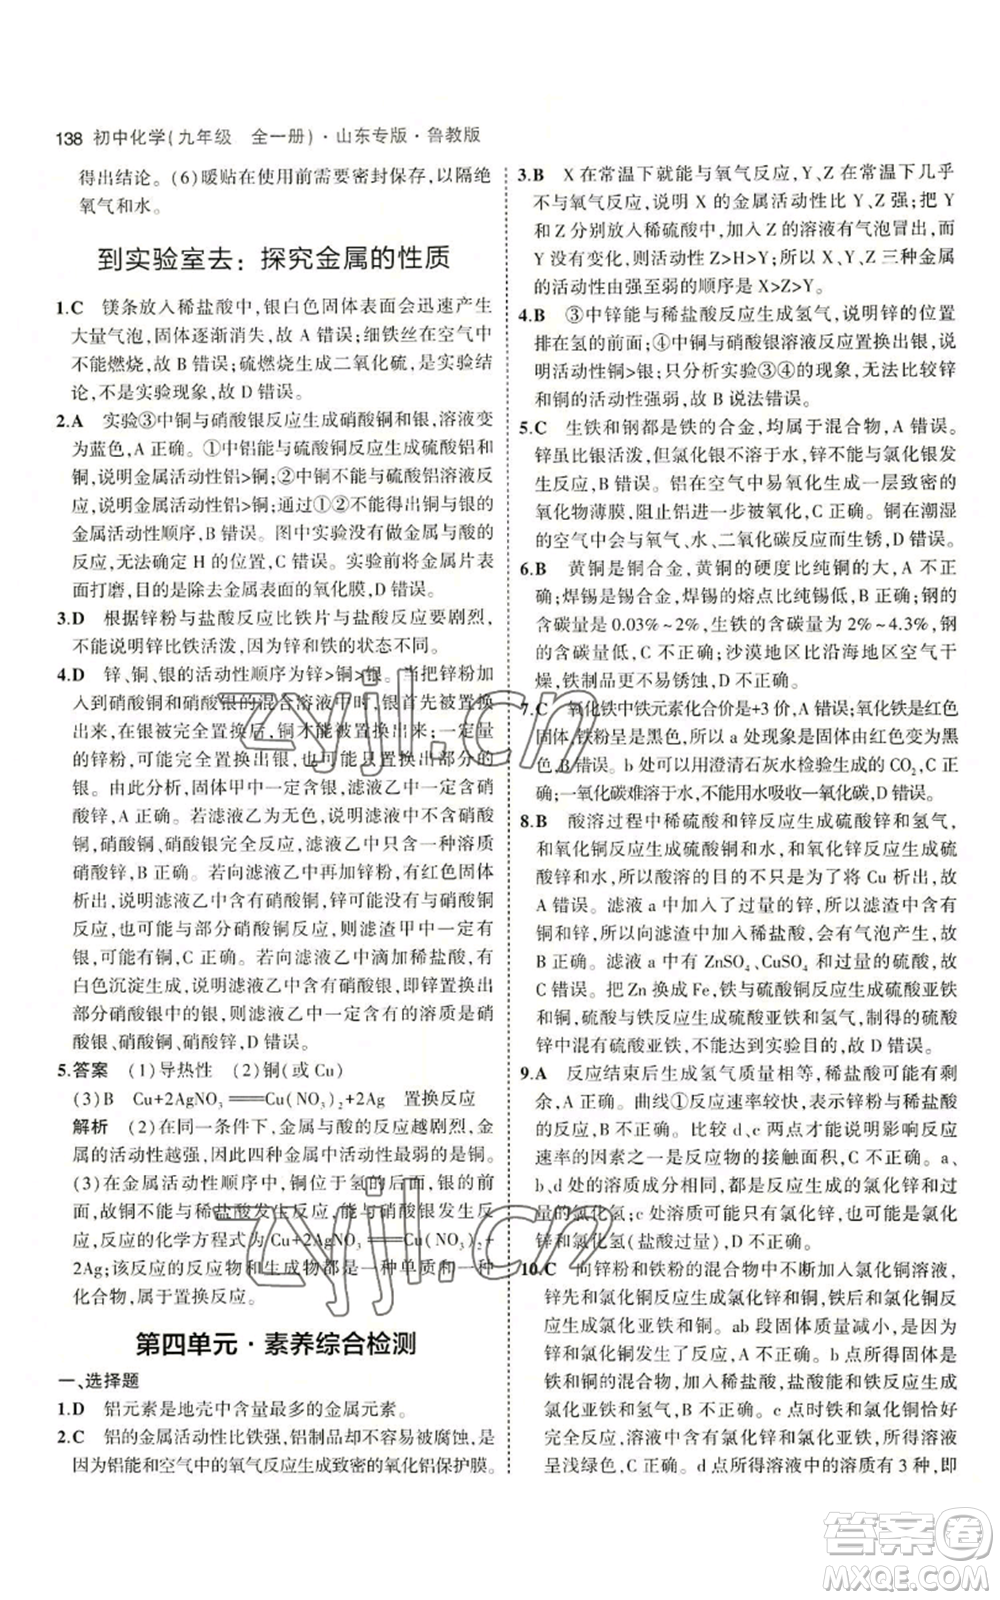 138 初中化学(九年级 全一册)·山东专版·鲁教版
得出结论。(6)暖贴在使用前需要密封保存,以隔绝
氧气和水。
到实验室去:探究金属的性质
1.C 镁条放入稀盐酸中,银白色固体表面会迅速产生
大量气泡,固体逐渐消失,故 A 错误;细铁丝在空气中
不能燃烧,故 B 错误;硫燃烧生成二氧化硫,是实验结
论,不是实验现象,故 D 错误。
2.A 实验③中铜与硝酸银反应生成硝酸铜和银,溶液变
为蓝色,A 正确。①中铝能与硫酸铜反应生成硫酸铝和
铜,说明金属活动性铝>铜;②中铜不能与硫酸铝溶液反
应,说明金属活动性铝>铜;通过①②不能得出铜与银的
金属活动性顺序,B 错误。图中实验没有做金属与酸的
反应,无法确定 H 的位置,C 错误。实验前将金属片表
面打磨,目的是除去金属表面的氧化膜,D 错误。
3.D 根据锌粉与盐酸反应比铁片与盐酸反应要剧烈,
不能说明锌比铁活泼,因为锌和铁的状态不同。
4.D 锌、铜、银的活动性顺序为锌>铜>银。当把锌粉加
入到硝酸铜和硝酸银的混合溶液中时,银首先被置换
出来,在银被完全置换后,铜才能被置换出来;一定量
的锌粉,可能完全置换出银,也可能置换出一部分的
银。由此分析,固体甲中一定含有银,滤液乙中一定含
有硝酸锌,A 正确。若滤液乙为无色,则滤液乙中一定
不含硝酸银、硝酸铜,所以滤液乙中只含一种溶质——
硝酸锌,B 正确。若向滤液乙中再加锌粉,有红色固体
析出,说明滤液乙中一定含有硝酸铜,可能是银完全
反应,也可能是与部分硝酸铜反应,故滤渣甲中一定有
银,可能有铜,C 正确。若向滤液乙中滴加稀盐酸,有
白色沉淀生成,说明滤液乙中含有硝酸银,即锌只能置
换出部分银,不能置换出铜,所以滤液乙中一定含有硝
酸银、硝酸铜、硝酸锌,故 D 错误。
5.答案 (1)导热性 (2)铜(或 Cu)
(3)B Cu+2AgNO₃══Cu(NO₃)₂+2Ag 置换反应
解析 (2)在同一条件下,金属与酸的反应越剧烈,金
属的活动性越强,因此四种金属中活动性最弱的是铜。
(3)在金属活动性顺序中,铜位于氢的后面,银的前
面,故不能与稀盐酸发生反应,能与硝酸银发生反
应,反应的化学方程式为 Cu+2AgNO₃══Cu(NO₃)₂+
2Ag;该反应的反应物和生成物都是一种单质和一种
化合物,属于置换反应。
第四单元·素养综合检测
一、选择题
1.D 铝元素是地壳中含量最多的金属元素。
2.C 铝的金属活动性比铁强,铝制品却不容易被腐蚀,是
因为铝能和空气中的氧气反应生成致密的氧化铝保护膜。
3.B X 在常温下就能与氧气反应,Y、Z 在常温下几乎
不与氧气反应,说明 X 的金属活动性比 Y、Z 强;把 Y
和 Z 分别放入稀硫酸中,加入 Z 的溶液有气泡产生,而
Y 没有变化,则活动性 Z>H>Y;所以 X、Y、Z 三种金属
的活动性由强至弱的顺序是 X>Z>Y。
4.B ③中锌能与稀盐酸反应生成氢气,说明锌的位置
排在氢的前面;④中铜与硝酸银溶液反应置换出银,
说明活动性铜>银;只分析实验③④的现象,无法比较锌
和铜的活动性强弱,故 B 说法错误。
5.C 生铁和钢都是铁的合金,均属于混合物,A 错误。
锌虽比银活泼,但氯化银不溶于水,锌不能与氯化银发
生反应,B 错误。铝在空气中易氧化生成一层致密的
氧化物薄膜,阻止铝进一步被氧化,C 正确。铜在潮湿
的空气中会与氧气、水、二氧化碳反应而生锈,D 错误。
6.B 黄铜是铜合金,黄铜的硬度比纯铜的大,A 不正
确;焊锡是锡合金,焊锡的熔点比纯锡低,B 正确;钢的
含碳量为 0.03%~2%,生铁的含碳量为 2%~4.3%,钢
的含碳量低,C 不正确;沙漠地区比沿海地区空气干
燥,铁制品更不易锈蚀,D 不正确。
7.C 氧化铁中铁元素化合价是+3 价,A 错误;氧化铁是红色
固体,铁粉呈黑色,所以 a 处现象是固体由红色变为黑
色,B 错误。b 处可以用澄清石灰水检验生成的 CO₂,C 正
确;一氧化碳难溶于水,不能用水吸收一氧化碳,D 错误。
8.B 酸溶过程中稀硫酸和锌反应生成硫酸锌和氢气,
和氧化铜反应生成硫酸铜和水,和氧化锌反应生成硫
酸锌和水,所以酸溶的目的不只是为了将 Cu 析出,故
A 错误。滤液 a 中加入了过量的锌,所以滤渣中含有
铜和锌,所以向滤渣中加入稀盐酸,会有气泡产生,故
B 正确。滤液 a 中有 ZnSO₄、CuSO₄和过量的硫酸,故
C 错误。把 Zn 换成 Fe,铁与硫酸铜反应生成硫酸亚铁
和铜,铁与硫酸反应生成硫酸亚铁和氢气,制得的硫酸
锌中混有硫酸亚铁,不能达到实验目的,故 D 错误。
9.A 反应结束后生成氢气质量相等,稀盐酸可能有剩
余,A 正确。曲线①反应速率较快,表示锌粉与稀盐酸的
反应,B 不正确。比较 d、e 两点才能说明影响反应
速率的因素之一是反应物的接触面积,C 不正确。a、
b、d 处的溶质成分相同,都是反应生成的氯化锌和过
量的氯化氢;c 处溶质可能只有氯化锌,也可能是氯化
锌和氯化氢(盐酸过量),D 不正确。
10.C 向锌粉和铁粉的混合物中不断加入氯化铜溶液,
锌先和氯化铜反应生成氯化锌和铜,铁后和氯化铜反
应生成氯化亚铁和铜。ab 段固体质量减小,是因为
锌和氯化铜发生了反应。a 点所得的固体是铁和铜
的混合物,向其中加入稀盐酸,铁能与稀盐酸反应生
成氯化亚铁和氢气,有气泡产生。c 点时锌和铁恰好
完全反应,溶液中含有氯化锌和氯化亚铁,所以溶液
呈浅绿色,C 正确。d 点所得溶液中的溶质有 3 种,即
zyjl.cn
zyjl.cn
答案卷
MXQE.COM